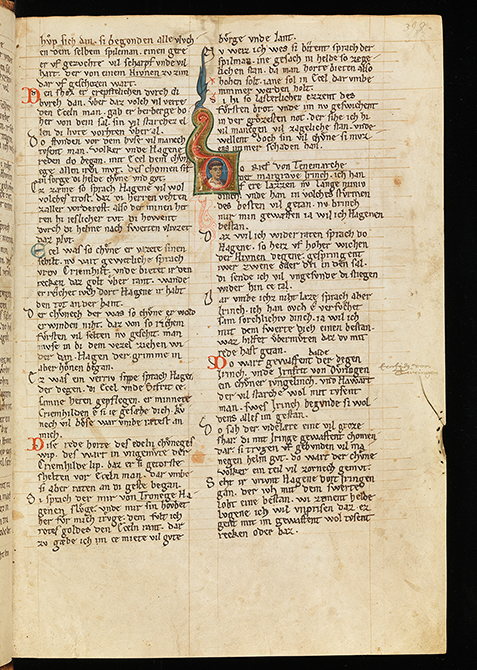 huop sich dan. si begonden alle vlych
en dem selben spilman. einen gere
er vf gezvchte vil scharpf vnde vil
hart. der von einem Hivnen zv zim
dar vf geschozen wart.
Den schoz er creftechlichen dvrch di
bvrch dan. vber daz volch vil verre
den Ecceln man. gab er herberge ho
her von dem sal. sin vil starchez el
len di livte vorhten vber al.
Do stvnden vor dem hvse vil manech
tvsent man. volker vnde Hagene
reden do began. mit Eceln dem chvn
ege. allen iren mvt. des chomen sit
in sorge di helde chvne vnd gvt.
Ez zæme so sprach Hagene vil wol
volches trost. daz di herren vehten
zaller vorderost. also der minen her
ren hi ieslicher tvt. di howent
dvrch di helme nach swerten vlivzet
daz plvt.
Ecel was so chvne er vazete sinen
schilt. nv vart gewerliche sprach
vrov Criemhilt. vnde bietet ir den
recken daz golt vber rant. wande
erreichet iveh dort Hagene ir habt
den tot an der hant.
Der chvnech der was so chvne er wold
erwinden niht. daz von so richem
fvrsten vil selten nv geschiht. man
mvse in bi dem vezzel ziehen wi
der dan. Hagen der grimme in
aber hōnen began.
Ez was ein verriv sippe sprach Hage
der degen. di Ecel vnde Sifrit ce
samne heten gepflegen. er minnete
Criemhilden e si ie gesæhe dich. kv
nech vil bōse war vmbe rætest an
mich.
Dise rede horte des edeln chvneges
wip. des wart in vngemvte der
Criemhilde lip. daz er si getorste
schelten vor Ecceln man. dar vmbe
si aber raten an di geste began.
Si sprach der mir von Tronege Ha
genen slvge. vnde mir sin hovbet
her fvr mich trvge. dem fvlt ich
rotes goldes den Eceln rant. dar
zv gæbe ich im ce miete vil gvte
bvrge vnde lant.
398
Nv weiz ich wes si bitent sprach der
spilman. ine gesach ni helde so zæge
lichen stan. da man horte bieten also
hohen solt. iane sol in Ecel dar vmbe
nimmer werden holt.
Di hi so lasterliche ezzent des
fvrsten brot. vnde im nv geswichent
in der grōzesten not. der sihe ich hi
vil manegen vil zægeliche stan. vnde
wellent doch sin vil chvne. si mvz
ens immer schaden han.
Do rief von Tenemarche
der margrave Irinch. ich han
vf ere lazzen nv lange miniv
dinch. vnde han in volches stvrmen
des besten vil getan. nv brinch
mir min gewæffen ia wil ich Hagenen
bestan.
Daz wil ich widerraten sprach do
Hagene. so heiz vf hoher wichen
der Hivnen degene. gespringent
iwer zwene oder dri in den sal.
di sende ich vil vngesvnde di stiegen
wider hin ce tal.
Dar vmbe ichz niht laze sprach aber
Irinch. ich han ovch e versvchet
sam sorchlichiv dinch. ia wil ich
mit dem swerte dich einen bestan.
waz hilfet vbermvten daz dv mit
rede hast getan.
Do wart gewaffent der degen balde
Irinch. vnde Irnfrit von Dvringen
ein chvner ivngelinch. vnd Hawart
der vil starche wol mit tvsent
man. swes Irinch begvnde si wol
dens alles im gestan.
Do sah der videlære eine vil groze
schar. di mit Iringe gewaffent chomen
dar. si trvgen vf gebvnden vil ma
negen helm gvt. do wart der chvne
volker ein teil vil zornech gemvt.
Seht ir vrivnt Hagene dort Iringen
gan. der vch mit dem swerte
lobt eine bestan. wi ziment helde
lvgene ich wil vnprisen daz. ez
gent mit im gewaffent wol tvsent
recken oder baz.